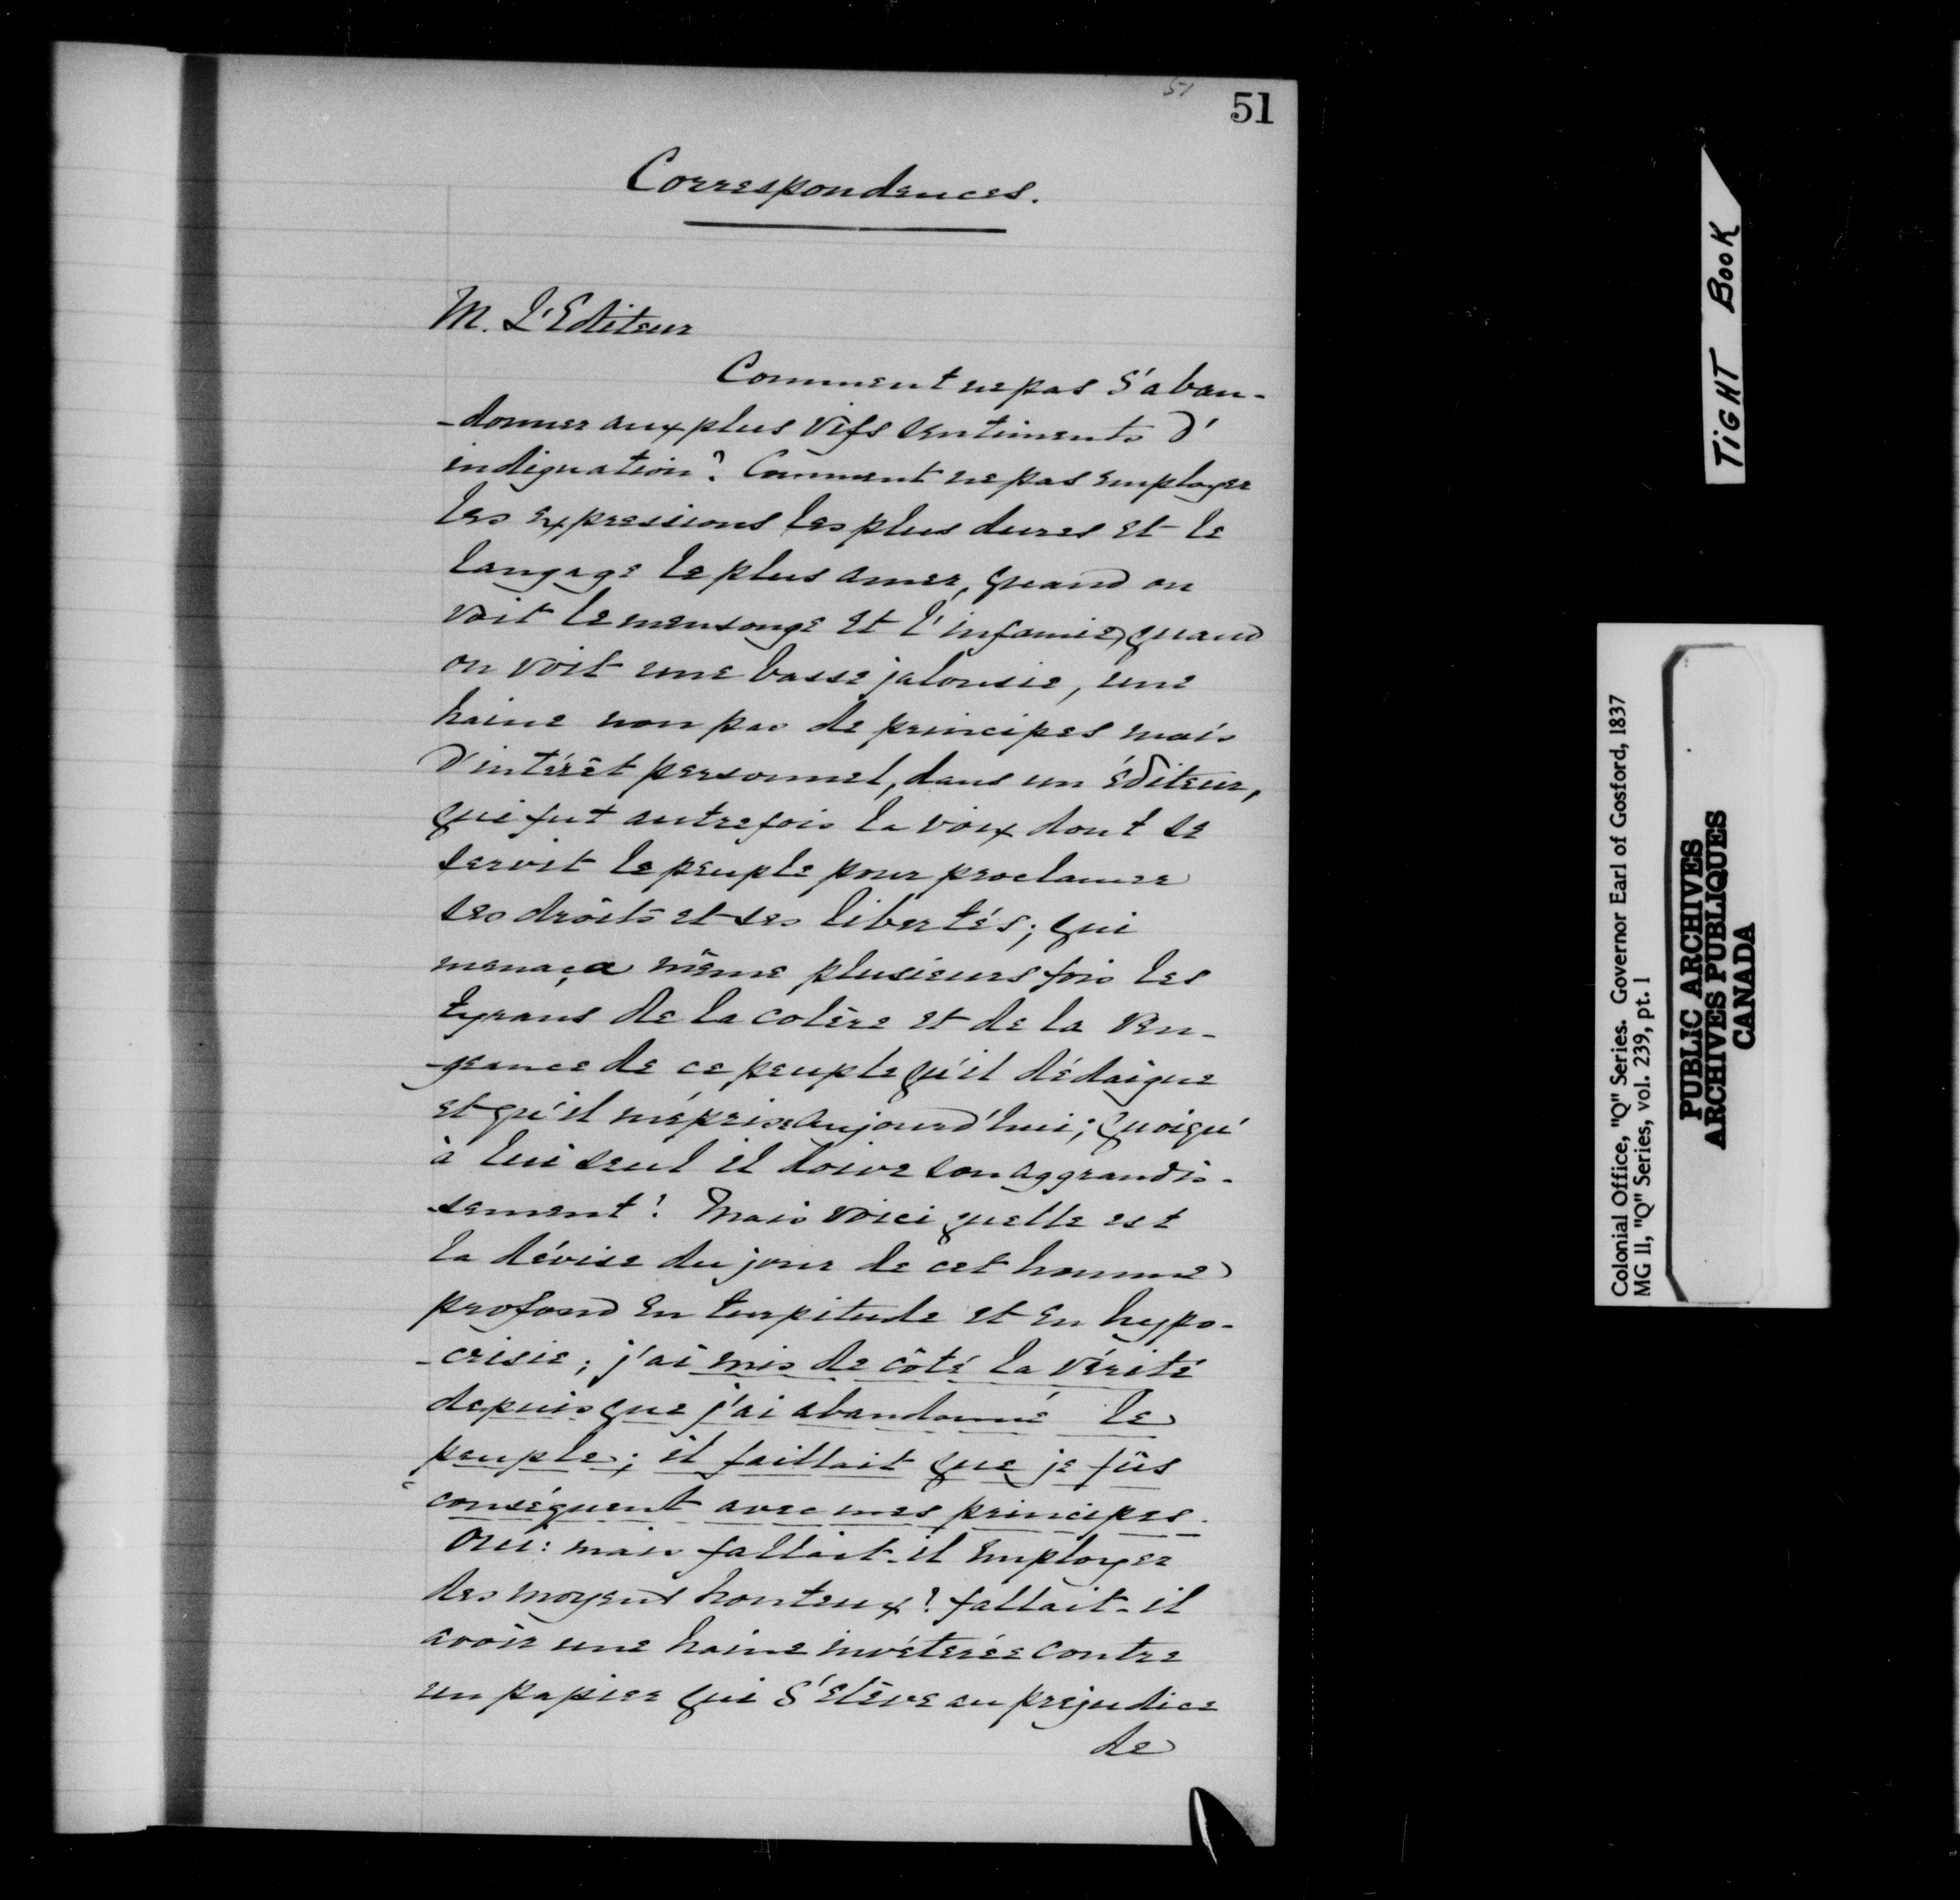 51
51
Correspondences.
M. L'Editeur
Comment ne pas s'aban-
-donner aux plus vifs sentiments d'
indignation? Comment ne pas employer
les expressions les plus dures et le
langage le plus amer, quand on
voit le mensonge et l'infamie, quand
on voit une basse jalousie, une
haine non pas de principes mais
d'intérêt personnel, dans un éditeur,
qui fut autrefois la voix dont se
servit le peuple pour proclamer
ses droits et ses libertés; qui
menaça même plusieurs fois les
tyrans de la colère et de la ven-
-geance de ce peuple qu'il dédaigne
et qu'il méprise aujourd'hui; quoiqu'
à lui seul il doive son aggrandis-
-sement? Mais voici quelle est
la dévise du jour de cet homme
profond en turpitude et en hypo-
-crisie; j'ai mis de côté la vérité
depuis que j'ai abandonné le
peuple; il faillait que je fûs
conséquent avec mes principes.
Oui: mais fallait-il employer
des moyens honteux? fallait-il
avoir une haine invétérée contre
un papier qui s'élève au préjudice
de
TIGHT BOOK
Colonial Office, "Q" Series. Governor Earl of Gosford, 1837
MG 11, "Q" Series, vol. 239, pt. 1
PUBLIC ARCHIVES
ARCHIVES PUBLIQUES
CANADA